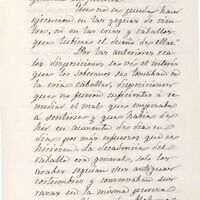 Pero no se puedan hacer
ejecucion en las yeguas de vien-
tres, ni en las crias y caballos
que tubieren el dueño de ellas.
Por las anteriores rea-
les disposiciones se vé el interés
que los soberanos se tomaban en
la cria caballar, disposiciones
que no fueron suficientes á re-
mediar el mal que empezaba
á sentirse y que habia de
ir en aumento de dia en
dia por mas esfuerzos que se
hicieron. La decadencia del
caballo era general, solo los
arabes seguian sus antiguas
costumbres y conservaban
la raza en la misma pureza